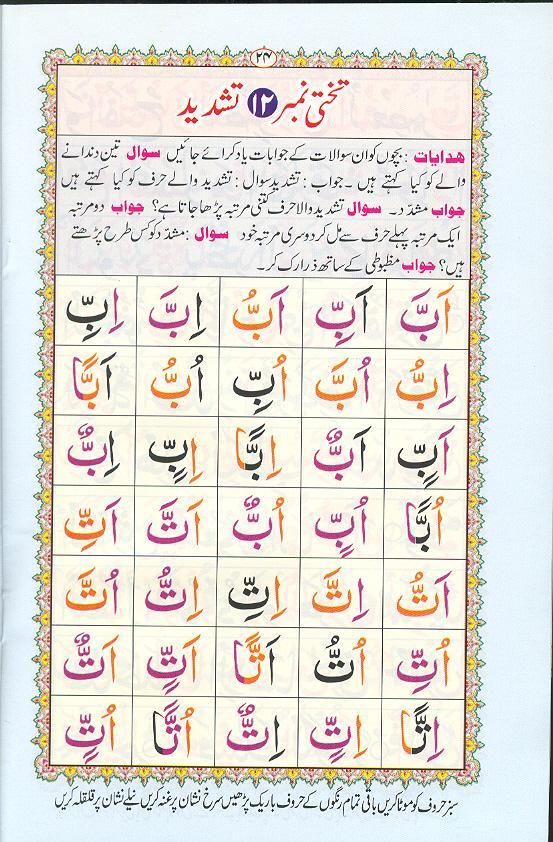 ۲۴
تختی نمبر ۱۲ تشدید
ھدایات : بچوں کو ان سوالات کے جوابات یاد کرائے جائیں سوال تین دندانے
والے کو کیا کہتے ہیں ۔ جواب : تشدید سوال : تشدید والے حرف کو کیا کہتے ہیں
جواب مشدّد ۔ سوال تشدید والا حرف کتنی مرتبہ پڑھا جاتا ہے؟ جواب دو مرتبہ
ایک مرتبہ پہلے حرف سے مل کر دوسری مرتبہ خود سوال : مشدّد کو کس طرح پڑھتے
ہیں؟ جواب مظبوطی کے ساتھ ذرا رک کر۔
اَبَّ اَبِّ اَبُّ اِبَّ اِبِّ
اِبُّ اُبَّ اُبِّ اُبُّ اَبًّا
اَبٍّ اَبٌّ اِبًّا اِبٍّ اِبٌّ
اُبًّا اُبٍّ اُبٌّ اَتَّ اَتِّ
اَتُّ اِتَّ اِتِّ اِتُّ اُتَّ
اُتِّ اُتُّ اَتًّا اَتٍّ اَتٌّ
اِتًّا اِتٍّ اِتٌّ اُتًّا اُتٍّ
سبز حروف کو موٹا کریں باقی تمام رنگوں کے حروف باریک پڑھیں سرخ نشان پر غنہ کریں نیلے نشان پر قلقلہ کریں